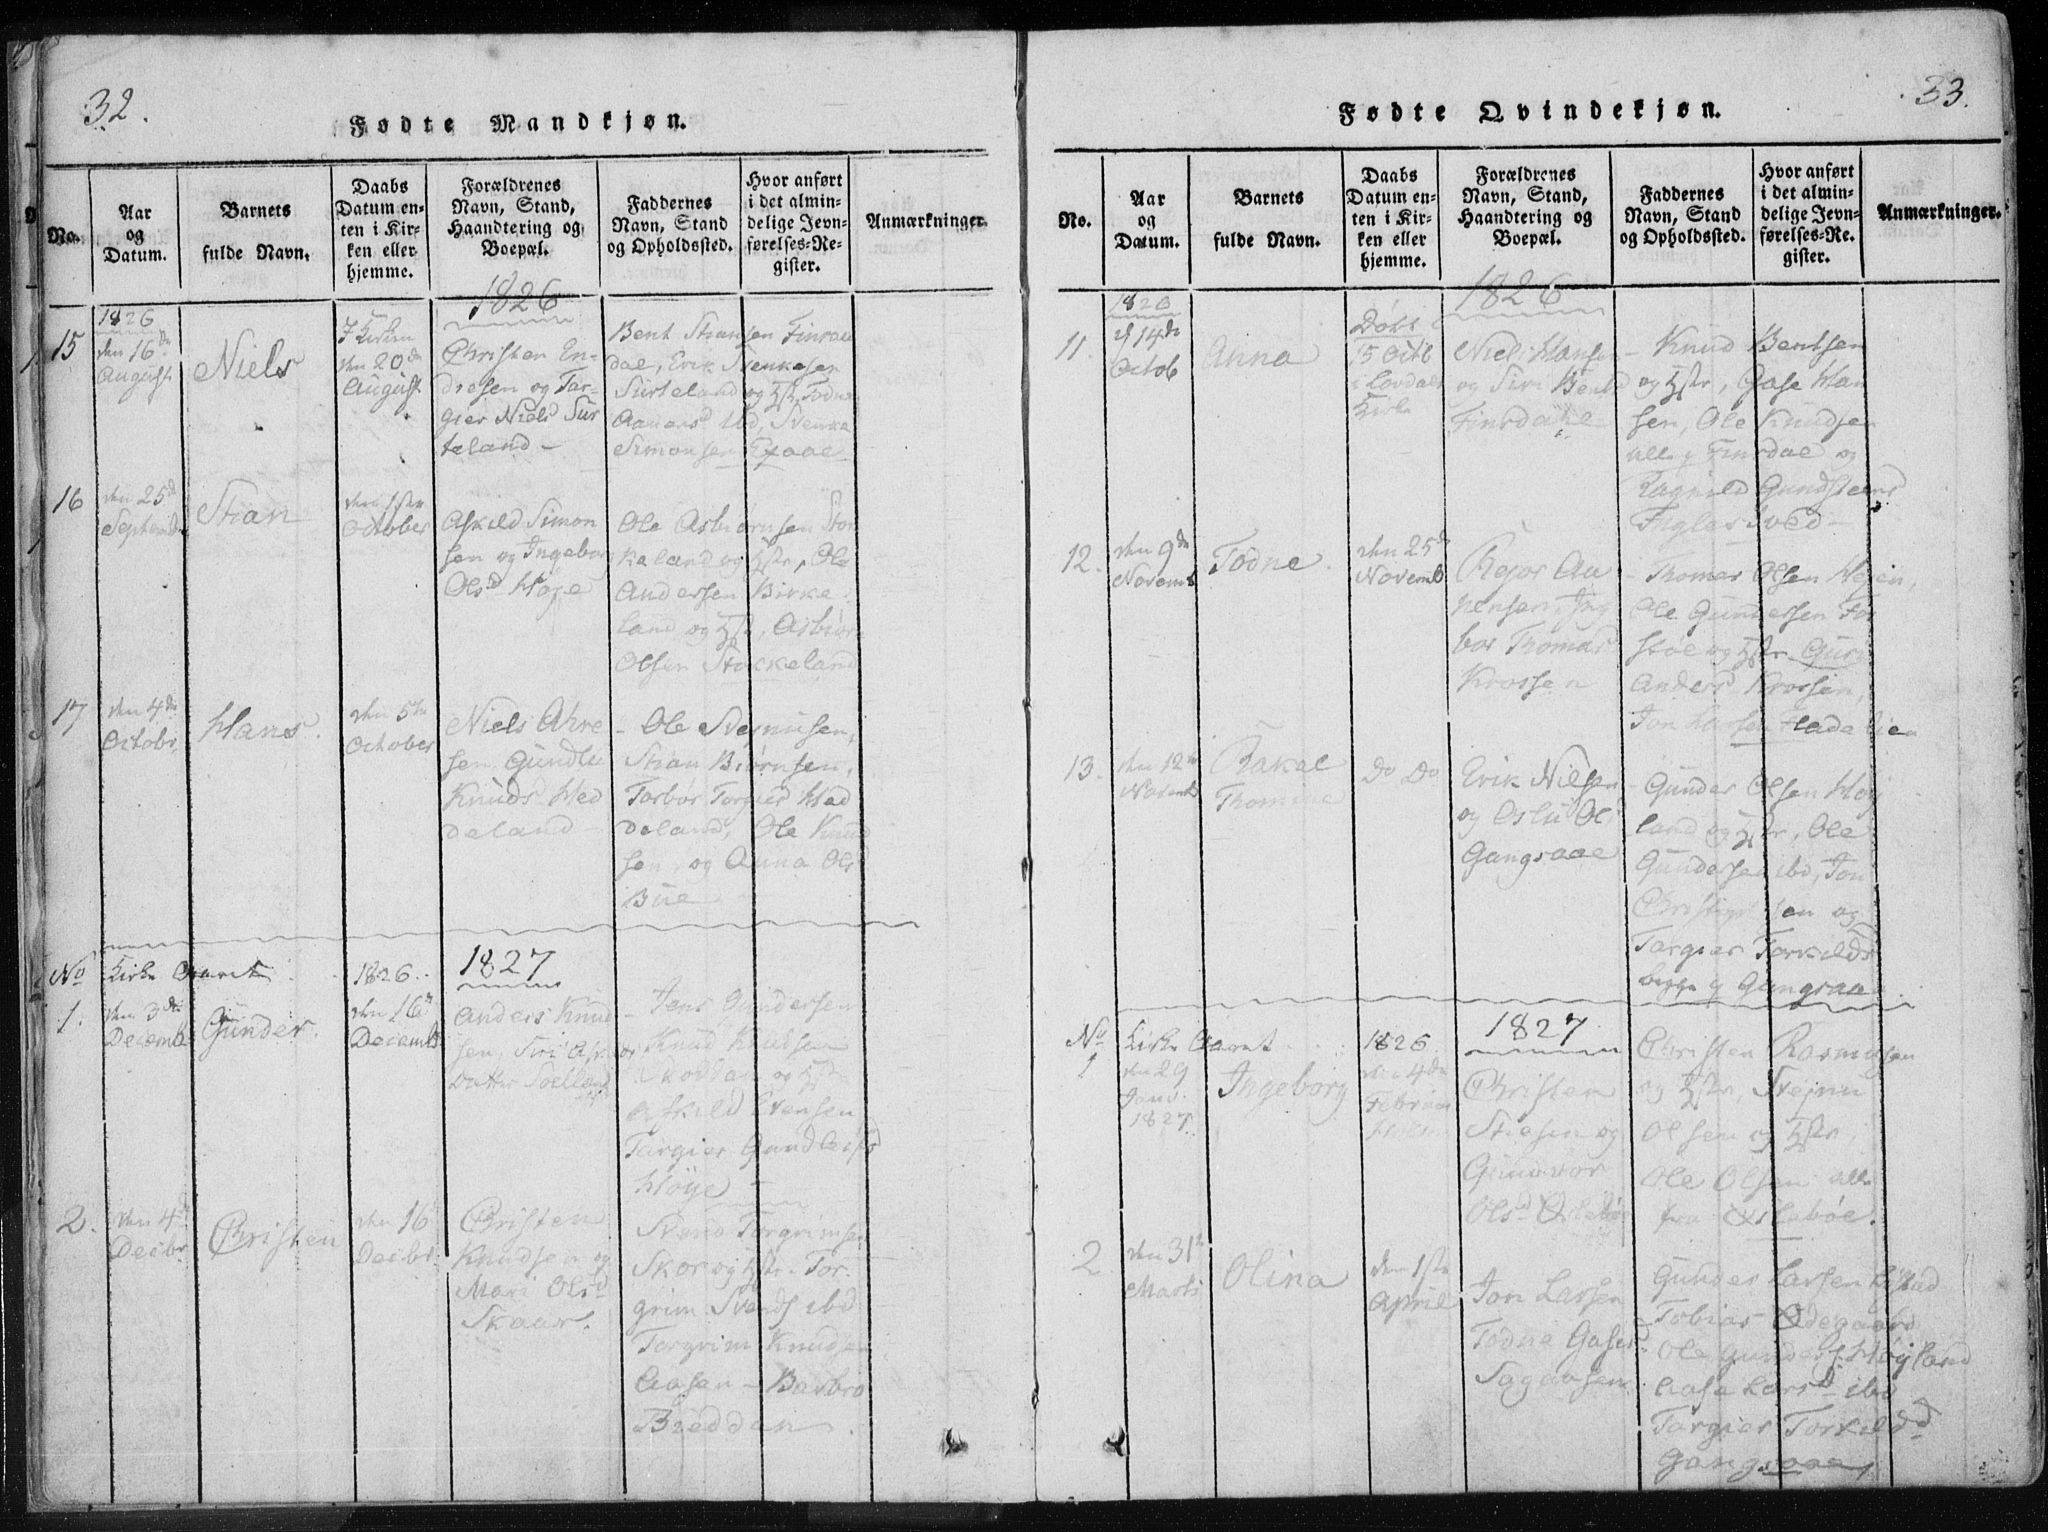 32.
Fødte Mandkjøn.
No.
Aar
og
Datum.
Barnets
fulde Navn.
Daabs
Datum en-
ten i Kir-
ken eller
hjemme.
Forældrenes
Navn, Stand,
Haandtering og
Boepæl.
Faddernes
Navn, Stand
og Opholdssted.
Hvor anført
i det almin-
delige Jevn-
førelses-Re-
gister.
Anmærkninger.
1826
15
1826
den 16de
August
Niels
I Kirken
den 20de
August
Christen En-
dresen og Tar-
gier Niels Sur
teland -
Bent Stiansen Finsdal
dal, Erik Svenkesen
Surteland og Hstr, Todne
Aanons ibd, Svenke
Simonsen
16
den 25de
Septemb
Stian
den 1ste
October
Askild Simon
sen og Ingeborg
Olsd Høye
Ole Asbiørnsen Stok
keland og Hstr, Ole
Andersen Birke
land og Hstr, Asbiør
Olsen Stokkeland
17
den 4de
Octobr
Hans.
den 5te
October
Niels Ahre
sen Gundle
Knuds Hed
deland -
- Ole Svejnusen,
Stian Biørnsen,
Torbor Torgiers Hed
deland, Ole Knud
sen, og Anna Ols
Bue
No
Kirke Aaret
1826.
1827
1.
den 3de
Decemb
Gunder.
den 16de
Decemb
Anders Knud
sen, Siri
Datter
- Jens Gundersen
Knud Knudsen
og Hstr
Askild Evensen
Targier Gundleifs
Høye -
2.
den 4de
Decbr
Christen
den 16
Decbr
Christen
Knudsen og
Mari Olsd
Skaar.
Svend Torgrimsen
Skar og Hstr - Tor-
grim Svends ibd
Torgrim Knudsen
Aasen - Barbro
Breddan.
33.
Fødte Qvindekjøn.
No.
Aar
og
Datum.
Barnets
fulde Navn.
Daabs
Datum en-
ten i Kir-
ken eller
hjemme.
Forældrenes
Navn, Stand,
Haandtering og
Boepæl.
Faddernes
Navn, Stand
og Opholdssted.
Hvor anført
i det almin-
delige Jevn-
førelses-Re-
gister.
Anmærkninger.
1826
11.
1826
d 14de
Octob
Anna
Døbt
15 Octb
i
Kirke
Niels Hansen
og Siri Bents
Finsdahl
- Knud Bentsen
og Hstr, Gase Han
sen, Ole Knudsen
alle f Finsdal og
Ragnild Gundsteens
12.
den 9de
Novemb
Todne.
den 25de
Novemb
Rejor Au
nensen, Ing
bor Thomas
Krossen
- Thomas Olsen Hejen,
Ole Gundersen
og Hstr Guro
Anders Krossen,
Jon Larsen
13.
den 12te
Novemb
Rakel
Thomine
Do Do
Erik Nielsen
og Oslu Ols
Gangsaae
- Gunder Olsen Høy
land og Hstr, Ole
Gundersen ibd, Jon
Christensen og
Targier Torkilds
begge f Gangsaae
No
Kirke Aaret
1826
1827
1
den 29
Janr.
1827.
Ingeborg
den 4de
Februar
Christen
Stiesen og
Gunnvor
Olsd Øslebø
Christen Rasmusen
og Hstr, Svejnu
Olsen og Hstr,
Ole Olsen alle
fra Øslebøe.
2
den 31te
Marts
Olina
den 1ste
April
Jon Larsen
Todne Gases
Sagaasen
Gunder Larsen
Tobias Ødegaard
Ole Gunders. Høyland
Aasa Larsd ibd
Targier Torkildsd
Gangsaae,